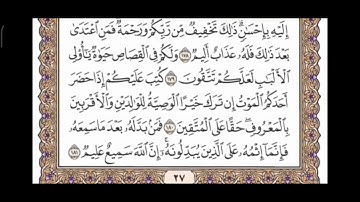 إِلَيْهِ بِإِحْسَٰنٍ ۗ ذَٰلِكَ تَخْفِيفٌ مِّن رَّبِّكُمْ وَرَحْمَةٌ ۗ فَمَنِ ٱعْتَدَىٰ
بَعْدَ ذَٰلِكَ فَلَهُۥ عَذَابٌ أَلِيمٌ ١٧٨ وَلَكُمْ فِى ٱلْقِصَاصِ حَيَوٰةٌ يَٰٓأُو۟لِى
ٱلْأَلْبَٰبِ لَعَلَّكُمْ تَتَّقُونَ ١٧٩ كُتِبَ عَلَيْكُمْ إِذَا حَضَرَ
أَحَدَكُمُ ٱلْمَوْتُ إِن تَرَكَ خَيْرًا ٱلْوَصِيَّةُ لِلْوَٰلِدَيْنِ وَٱلْأَقْرَبِينَ
بِٱلْمَعْرُوفِ ۖ حَقًّا عَلَى ٱلْمُتَّقِينَ ١٨٠ فَمَنۢ بَدَّلَهُۥ بَعْدَ مَا سَمِعَهُۥ
فَإِنَّمَآ إِثْمُهُۥ عَلَى ٱلَّذِينَ يُبَدِّلُونَهُۥٓ ۚ إِنَّ ٱللَّهَ سَمِيعٌ عَلِيمٌ ١٨١
٢٧